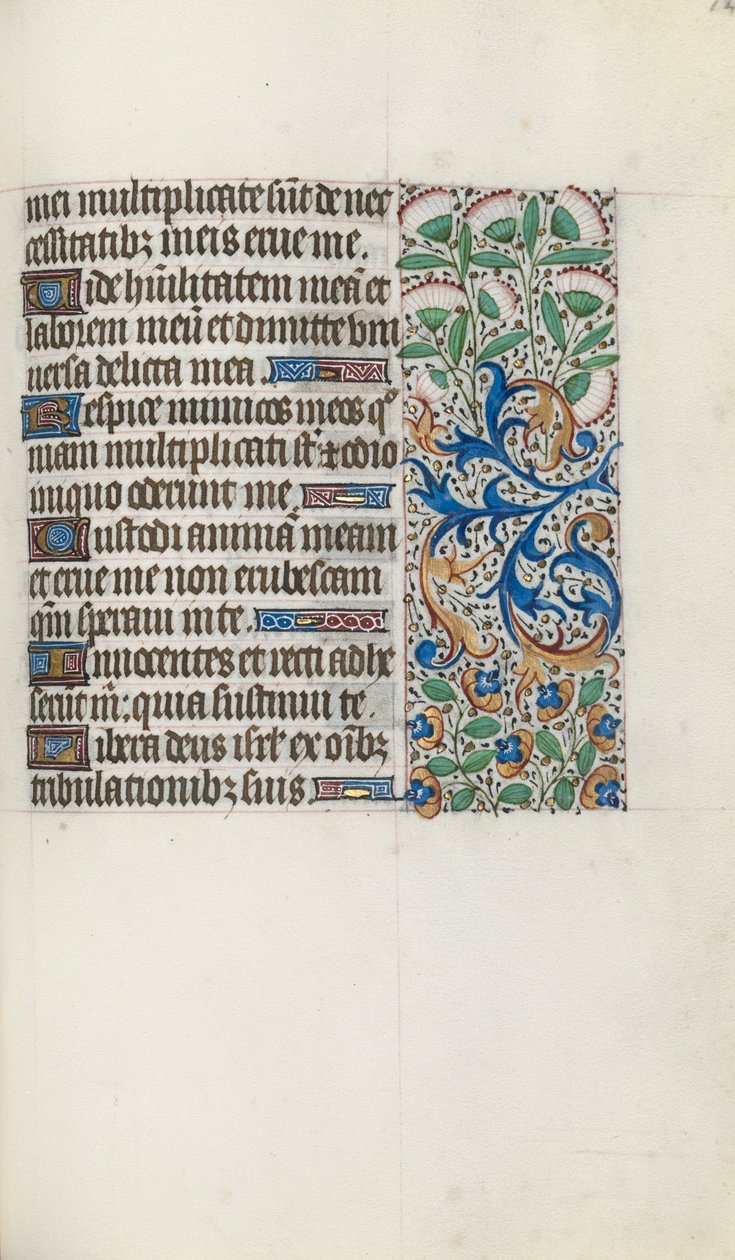 mei multiplicate sūt de nec
cessitatibꝫ meis erue me.
Vide hūilitatem meā et
laborem meū et dimitte vni
uersa delicta mea
Respice inimicos meos qm̄
niam multiplicati st̄ ⁊ odio
iniquo oderunt me
Custodi animā meam
et erue me non erubescam
qm̄ speraui in te.
Innocentes et recti adhe
serūt m̄: quia sustinui te.
Libera deus isrl̄ ex oībꝫ
tribulationibꝫ suis.